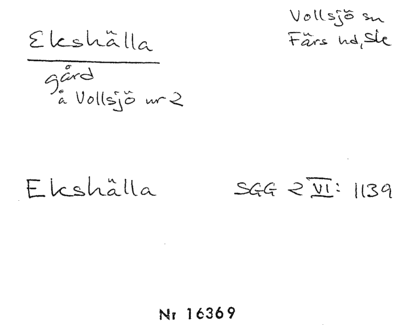 Ekshälla
Vollsjö sn
Färs hd, Sk
gård
å Vollsjö nr 2
Ekshälla SGG 2 VI: 1139
Nr 16369